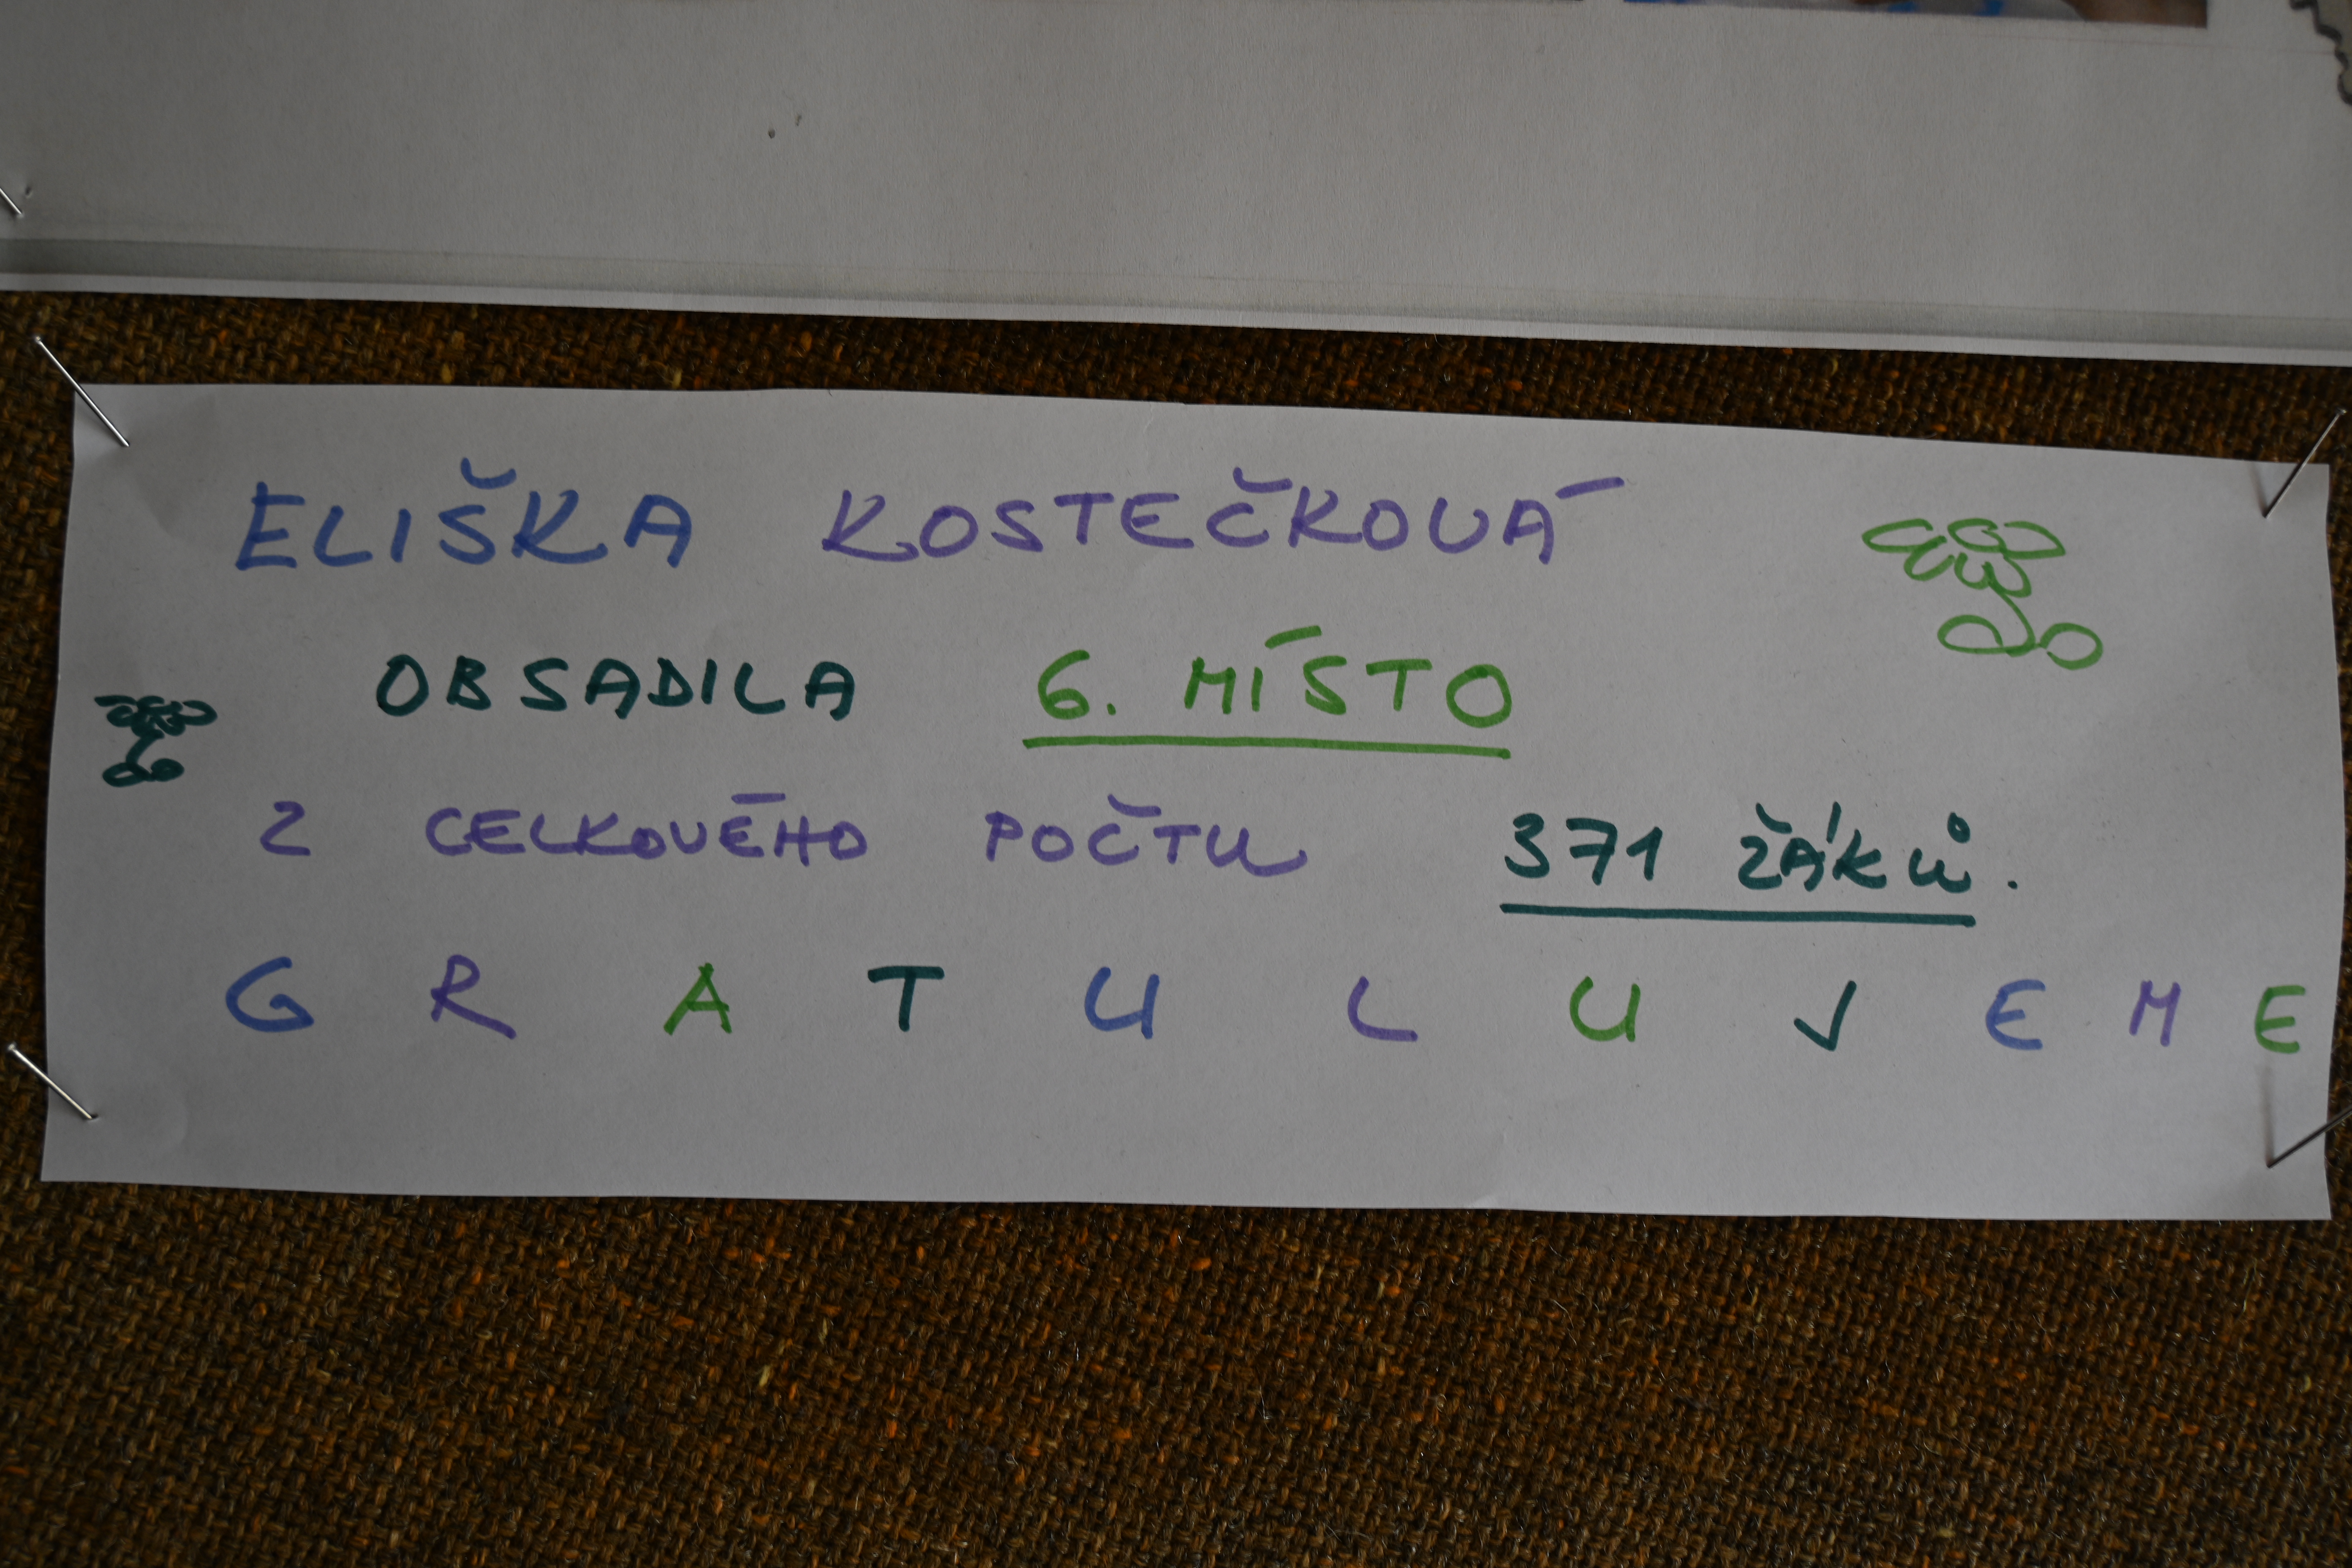 ELIŠKA KOSTEČKOVÁ
OBSADILA 6. MÍSTO
Z CELKOVÉHO POČTU 371 ŽÁKŮ.
GRATULUJEME